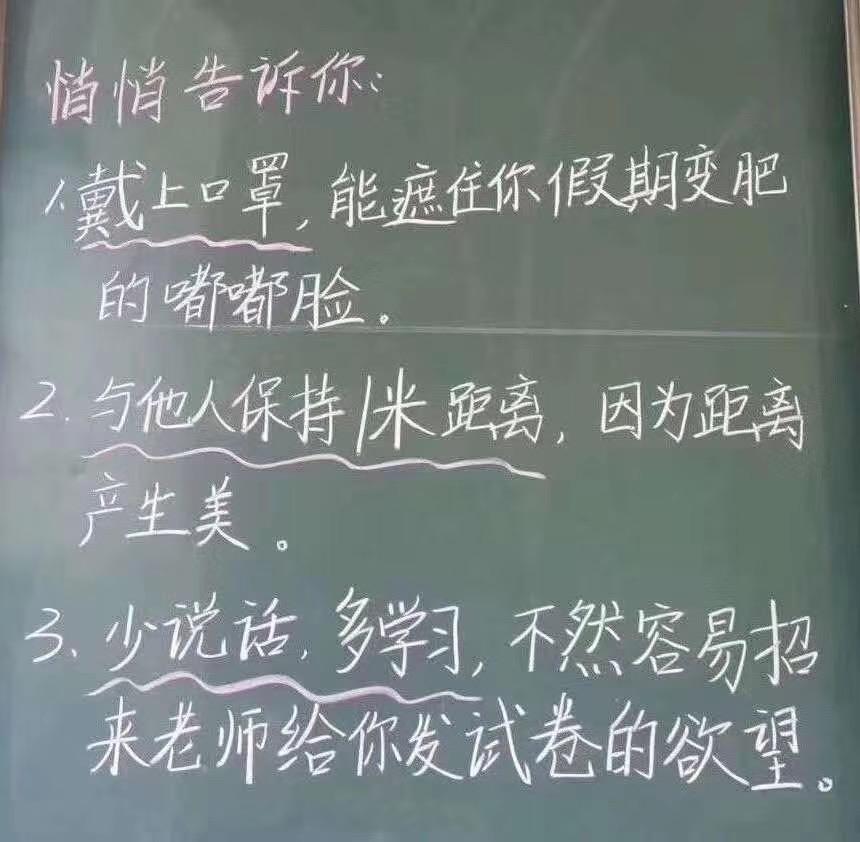 悄悄告诉你:
1.戴上口罩,能遮住你假期变肥
的嘟嘟脸。
2.与他人保持1米距离,因为距离
产生美。
3、少说话,多学习,不然容易招
来老师给你发试卷的欲望。